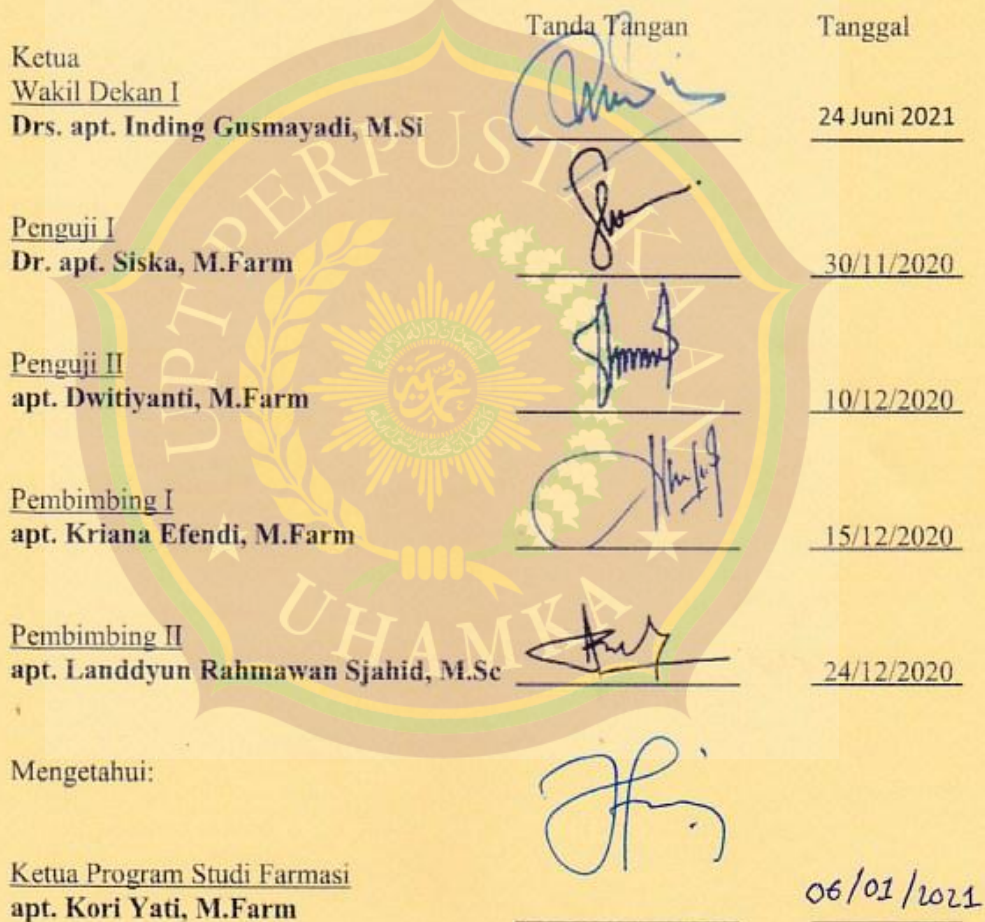 Tanda Tangan Tanggal
Ketua
Wakil Dekan I
Drs. apt. Inding Gusmayadi, M.Si 24 Juni 2021
Penguji I
Dr. apt. Siska, M.Farm 30/11/2020
Penguji II
apt. Dwitiyanti, M.Farm 10/12/2020
Pembimbing I
apt. Kriana Efendi, M.Farm 15/12/2020
Pembimbing II
apt. Landdyun Rahmawan Sjahid, M.Sc 24/12/2020
Mengetahui:
Ketua Program Studi Farmasi
apt. Kori Yati, M.Farm 06/01/2021
UPT PERPUSTAKAAN
UHAMKA